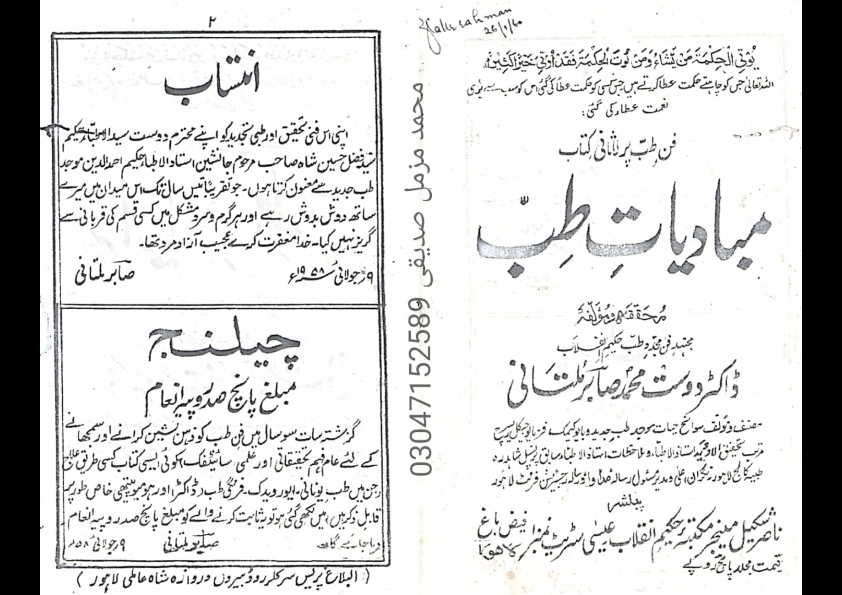 یُؤتِی الْحِکْمَةَ مَنْ یَّشَاءُ وَمَنْ یُّؤْتَ الْحِکْمَةَ فَقَدْ اُوْتِیَ خَیْرًا کَثِیْرًا
اللہ تعالیٰ جس کو چاہتے حکمت عطا کرتے ہیں جس کسی کو حکمت عطا کی گئی اس کو سب سے بڑی
نعمت عطاء کی گئی:
فن طب پر لاثانی کتاب
مبادیاتِ طِبّ
محققہ و مؤلفہ
مجتہد فن مجدد طب حکیم انقلاب
ڈاکٹر دوست محمد صابر ملتانی
مصنف و مؤلف سوانح حیات موجد طب جدید و بایو کیمک، فزیالوجیکل
طبیہ کالج لاہور نگران اعلیٰ و مدیر مسئول رسالہ رجسٹریشن فرنٹ لاہور
پبلشر
ناصر شکیل مینیجر مکتبہ حکیم انقلاب عیسیٰ سٹریٹ نمبر فیض باغ لاہور
قیمت مجلد پانچ روپے
26/1/60
محمد مزمل صدیقی 03047152589
۲
انتساب
اپنی اس فنی تحقیق اور طبی تجدید کو اپنے محترم دوست سید الاطباء حکیم
سید فضل حسین شاہ صاحب مرحوم جانشین استاد الاطباء حکیم احمد الدین موجد
طب جدید سے معنون کرتا ہوں۔ جو تقریباً بائیس سال تک اس میدان میں میرے
ساتھ دوش بدوش رہے اور ہر گرم و سرد مشکل میں کسی قسم کی قربانی سے
گریز نہیں کیا۔ خدا مغفرت کرے عجیب آزاد مرد تھا۔
۹ جولائی ۱۹۵۸ء صابر ملتانی
چیلنج
مبلغ پانچ صد روپیہ انعام
گزشتہ سات سو سال میں فن طب کو ذہن نشین کرانے اور سمجھانے
کے لئے عام فہم تحقیقاتی اور علمی و سائنٹفک کوئی ایسی کتاب کسی طریق علاج
(جن میں طب یونانی۔ ایورویدک۔ فرنگی طب (ڈاکٹری) اور ہومیوپیتھی خاص طور پر
قابل ذکر ہیں) میں لکھی گئی ہو تو یہ ثابت کرنے والے کو مبلغ پانچ صد روپیہ انعام
دیا جائے گا۔ صابر ملتانی ۹ جولائی ۵۸ء
(البلاغ پریس سرکلر روڈ بیرون دروازہ شاہ عالمی لاہور)